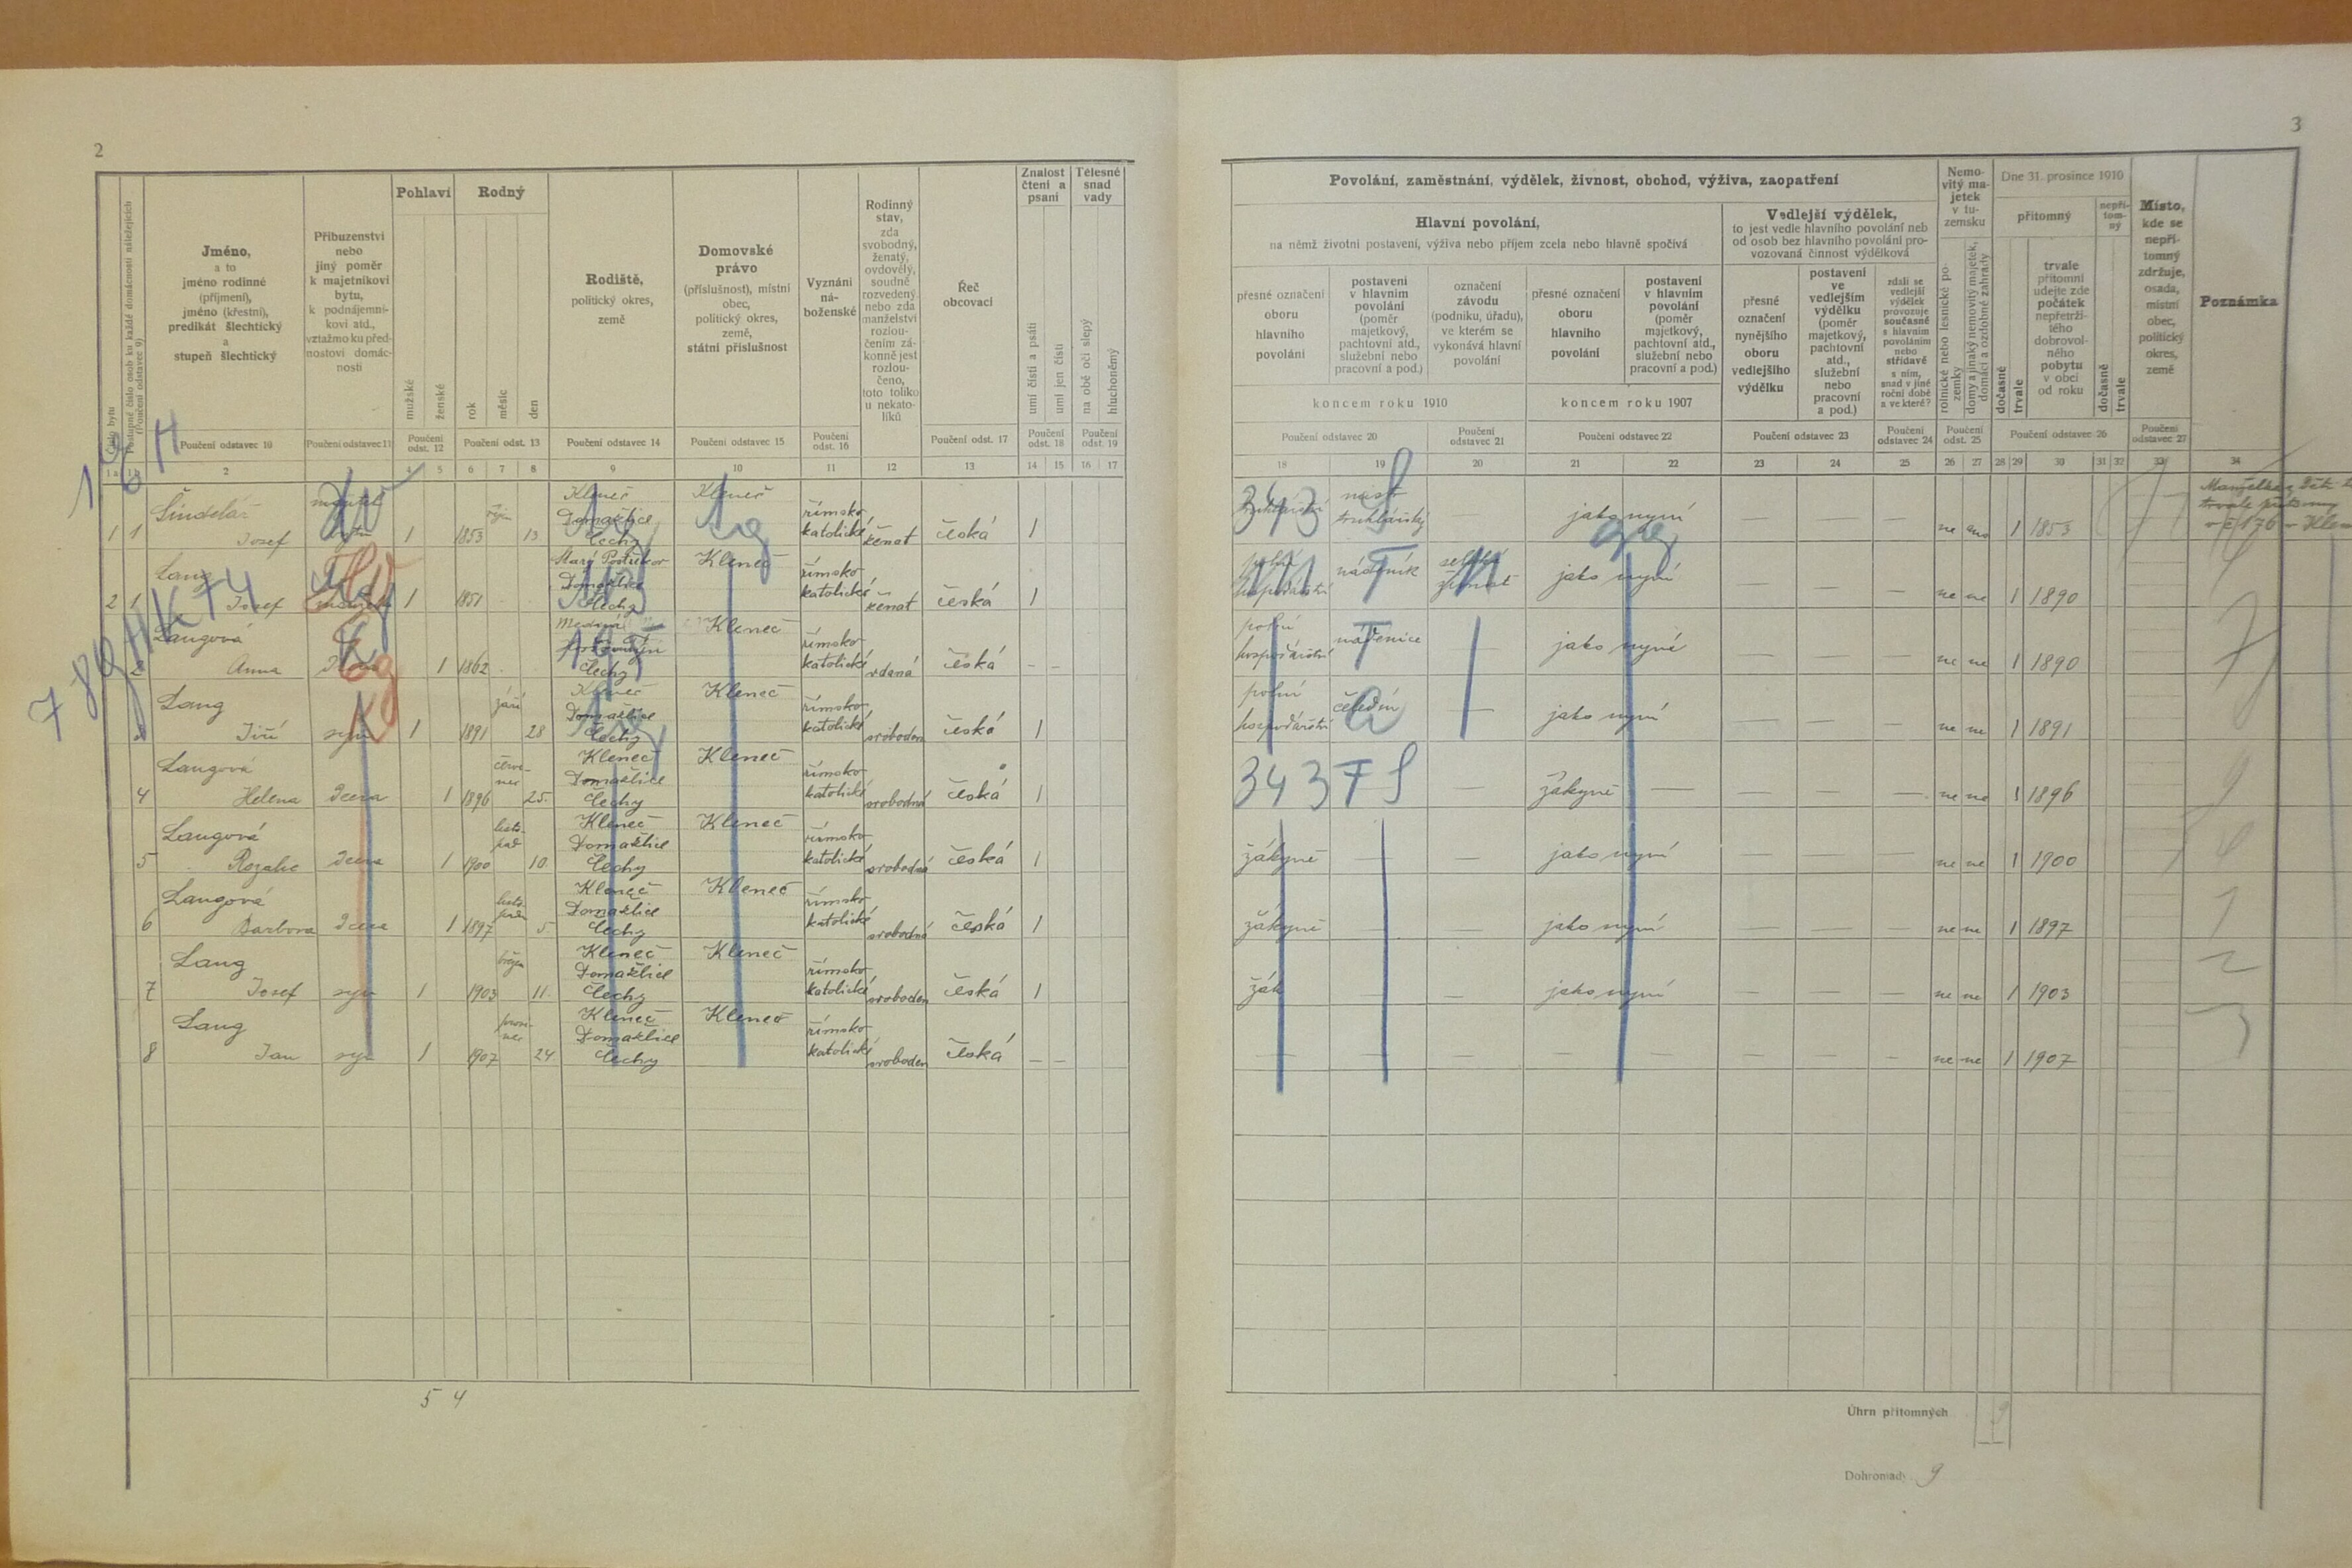 2
3
Pohlaví
Rodný
Znalost čtení a psaní
Tělesné snad vady
Číslo bytu
Postupné číslo osob ku každé domácnosti náležejících (Poučení odstavec 9)
Jméno,
a to
jméno rodinné
(příjmení),
jméno (křestní),
predikát šlechtický
a
stupeň šlechtický
Příbuzenství
nebo
jiný poměr
k majetníkovi
bytu,
k podnájemní-
kovi atd.,
vztažmo ku před-
nostovi domác-
nosti
mužské
ženské
rok
měsíc
den
Rodiště,
politický okres,
země
Domovské
právo
(příslušnost), místní
obec,
politický okres,
země,
státní příslušnost
Vyznání
ná-
boženské
Rodinný
stav,
zda
svobodný,
ženatý,
ovdovělý,
soudně
rozvedený
nebo zda
manželství
rozlou-
čením zá-
konně jest
rozlou-
čeno,
toto toliko
u nekato-
líků
Řeč
obcovací
umí čísti a psáti
umí jen čísti
na obě oči slepý
hluchoněmý
Poučení odstavec 10
Poučení odstavec 11
Poučení odst. 12
Poučení odst. 13
Poučení odstavec 14
Poučení odstavec 15
Poučení odst. 16
Poučení odst. 17
Poučení odst. 18
Poučení odst. 19
2 4 5 6 7 8 9 10 11 12 13 14 15 16 17
Povolání, zaměstnání, výdělek, živnost, obchod, výživa, zaopatření
Hlavní povolání,
na němž životní postavení, výživa nebo příjem zcela nebo hlavně spočívá
Vedlejší výdělek,
to jest vedle hlavního povolání neb
od osob bez hlavního povolání pro-
vozovaná činnost výdělková
Nemo-
vitý ma-
jetek
v tu-
zemsku
Dne 31. prosince 1910
přítomný
nepří-
tom-
ný
Místo,
kde se
nepří-
tomný
zdržuje,
osada,
místní
obec,
politický
okres,
země
Poznámka
přesné označení
oboru
hlavního
povolání
postavení
v hlavním
povolání
(poměr
majetkový,
pachtovní atd.,
služební nebo
pracovní a pod.)
označení
závodu
(podniku, úřadu),
ve kterém se
vykonává hlavní
povolání
přesné označení
oboru
hlavního
povolání
postavení
v hlavním
povolání
(poměr
majetkový,
pachtovní atd.,
služební nebo
pracovní a pod.)
přesné
označení
nynějšího
oboru
vedlejšího
výdělku
postavení
ve
vedlejším
výdělku
(poměr
majetkový,
pachtovní
atd.,
služební
nebo
pracovní
a pod.)
zdali se
vedlejší
výdělek
provozuje
současně
s hlavním
povoláním
nebo
střídavě
s ním,
snad v jiné
roční době
a ve které?
rolnické nebo lesnické po-
zemky
domy a jinaký nemovitý majetek,
domácí a ozdobné zahrady
dočasně
trvale
trvale
přítomní
udejte zde
počátek
nepřetrži-
tého
dobrovol-
ného
pobytu
v obci
od roku
dočasně
trvale
koncem roku 1910
koncem roku 1907
Poučení odstavec 20
Poučení odstavec 21
Poučení odstavec 22
Poučení odstavec 23
Poučení odstavec 24
Poučení odst. 25
Poučení odstavec 26
Poučení odstavec 27
18 19 20 21 22 23 24 25 26 27 28 29 30 31 32 33 34
1 1 Šindelář Josef 1 1853 říjen 13 Kleneč Domažlice Čechy Kleneč římsko katolické ženat česká 1
truhlářský — jako nyní — — — ne ano 1 1853
v č 176
2 1 Lang Josef 1 1851 Domažlice Čechy Kleneč římsko katolické ženat česká 1
nádeník jako nyní — — — ne ne 1 1890
2 Langová Anna 1 1862 Čechy Kleneč římsko katolické vdaná česká — —
polní hospodářství nádenice jako nyní — — — ne ne 1 1890
Lang Jiří syn 1 1891 září 28 Kleneč Domažlice Čechy Kleneč římsko katolické svoboden česká 1
polní hospodářství čeledín — jako nyní — — — ne ne 1 1891
4 Langová Helena dcera 1 1896 červe-nec 25. Kleneč Domažlice Čechy Kleneč římsko katolické svobodná česká 1
343 — žákyně — — — — ne ne 1 1896
5 Langová Rozalie dcera 1 1900 listo-pad 10. Kleneč Domažlice Čechy Kleneč římsko katolické svobodná česká 1
žákyně — — jako nyní — — — ne ne 1 1900
6 Langová Barbora dcera 1 1897 listo-pad 5. Kleneč Domažlice Čechy Kleneč římsko katolické svobodná česká 1
žákyně — — jako nyní — — — ne ne 1 1897
7 Lang Josef syn 1 1903 11. Kleneč Domažlice Čechy Kleneč římsko katolické svoboden česká 1
žák — — jako nyní — — — ne ne 1 1903
8 Lang Jan syn 1 1907 prosi-nec 24 Kleneč Domažlice Čechy Kleneč římsko katolické svoboden česká — —
— — — — — — — — ne ne 1 1907
5 4
Úhrn přítomných 9
Dohromady 9